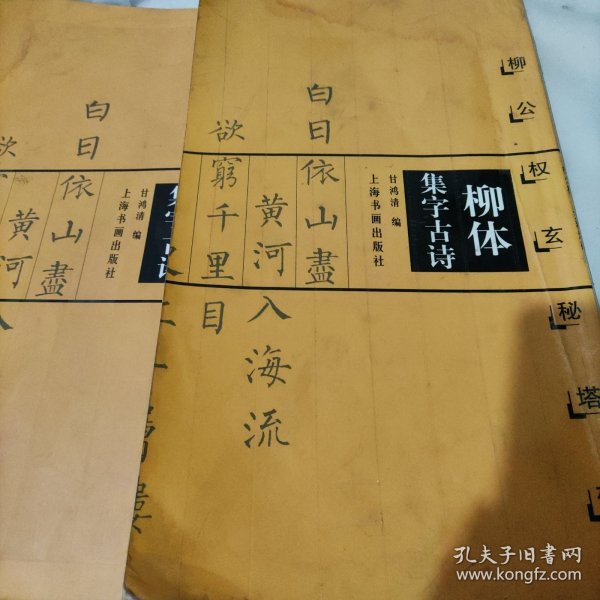 柳公权玄秘塔
柳体
集字古诗
甘鸿清 编
上海书画出版社
白日依山盡
黄河入海流
欲窮千里目
甘鸿清 编
上海书画出版社
白日依山盡
黄河入
欲
集字古诗
孔夫子旧书网
www.kongfz.com